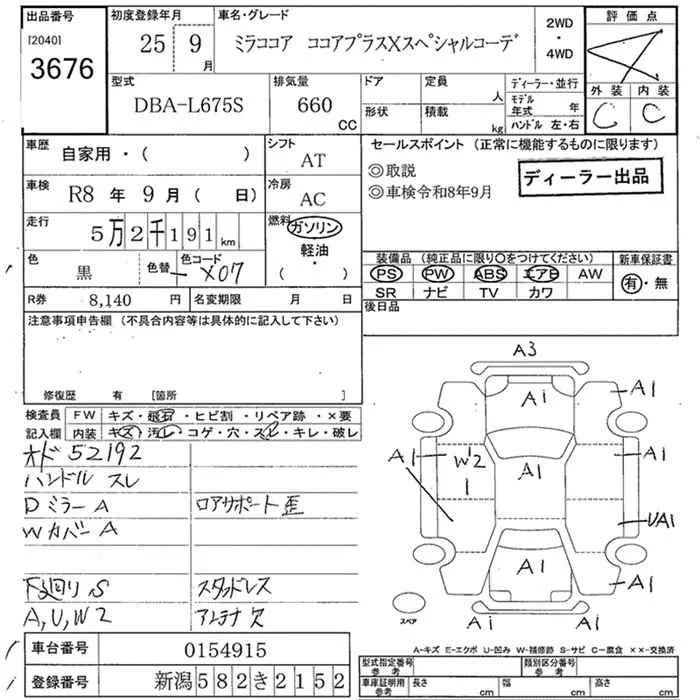 出品番号
[2040]
3676
初度登録年月
25 9月
車名・グレード
ミラココア ココアプラスXスペシャルコーデ
2WD
・
4WD
評価点
4
外装 内装
C C
型式
DBA-L675S
排気量
660
CC
ドア
定員
人
形状
積載
kg
ディーラー・並行
モデル年式 年
ハンドル 左・右
車歴
自家用・( )
シフト
AT
車検
R8年9月( 日)
冷房
AC
走行
5万2千191km
燃料
ガソリン
軽油・
( )
色
黒
色替
色コード
X07
R券 8,140 円
名変期限 月 日
セールスポイント (正常に機能するものに限ります)
◎取説
◎車検令和8年9月
ディーラー出品
装備品 (純正品に限り○をつけてください)
新車保証書
PS PW ABS エアB AW
SR ナビ TV カワ
有・無
後日品
注意事項申告欄 (不具合内容等は具体的に記入して下さい)
修復歴 有 [箇所 ]
検査員記入欄
FW キズ・飛石・ヒビ割・リペア跡・×要
内装 キズ・汚レ・コゲ・穴・スレ・キレ・破レ
オド 52192
ハンドル スレ
Dミラー A
ロアサポート歪
Wカバー A
下廻り S
スタッドレス
A,U,W2
アンテナ欠
A3
A1
A1
A1
A1
W2
1
A1
A1
UA1
A1
A1
A1
A1
スペア
A-キズ E-エクボ U-凹み W-補修跡 S-サビ C-腐食 ××-交換済
車台番号 0154915
登録番号 新潟582き2152
型式指定番号
参考
類別区分番号
参考
車庫証明用
参考
長さ cm
幅 cm
高さ cm